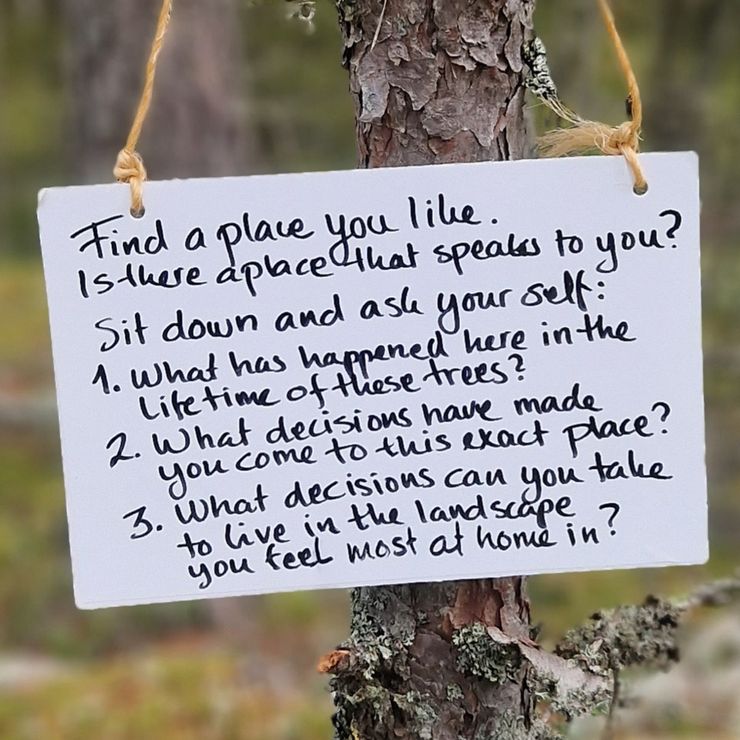 Find a place you like.
Is there a place that speaks to you?
Sit down and ask your self:
1. What has happened here in the
lifetime of these trees?
2. What decisions have made
you come to this exact place?
3. What decisions can you take
to live in the landscape
you feel most at home in?